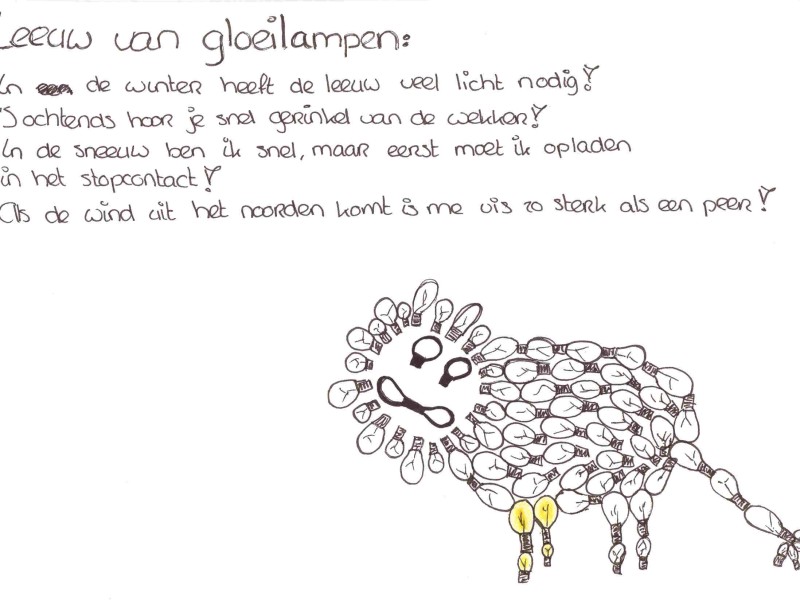 Leeuw van gloeilampen:
In de winter heeft de leeuw veel licht nodig!
'S ochtends hoor je snel gerinkel van de wekker!
In de sneeuw ben ik snel, maar eerst moet ik opladen
in het stopcontact!
Als de wind uit het noorden komt is me vis zo sterk als een peer!